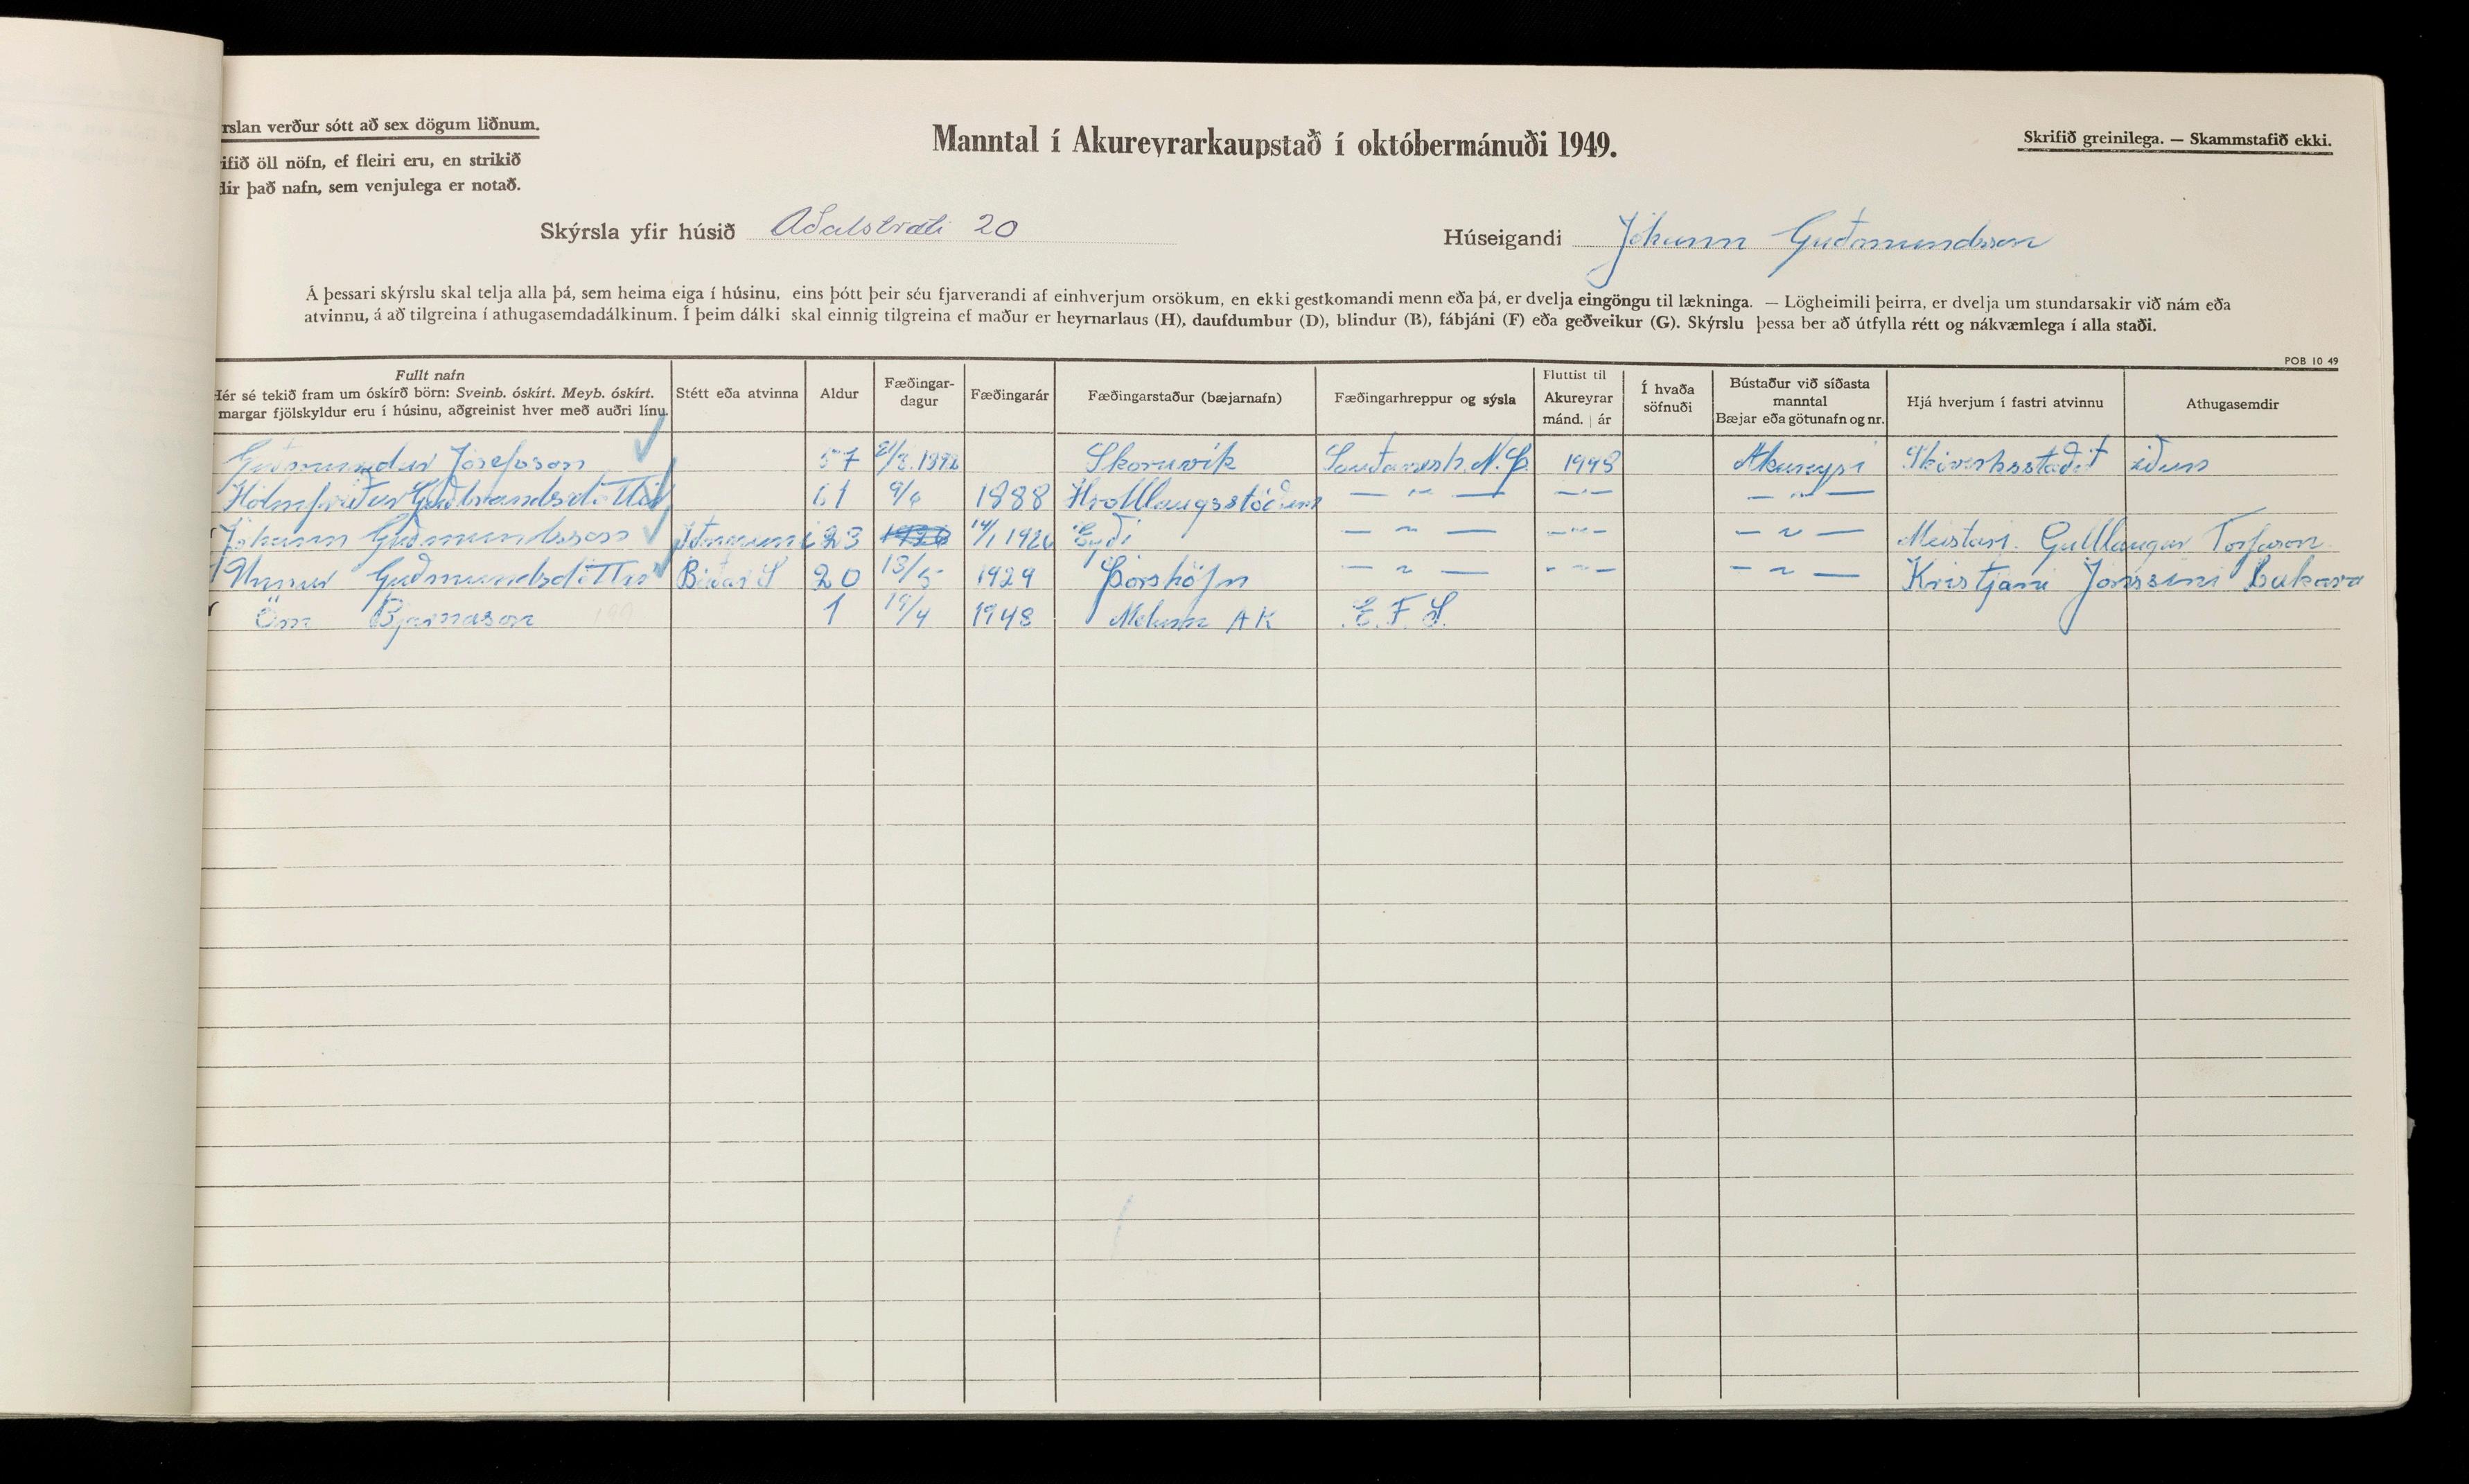 rslan verður sótt að sex dögum liðnum.
ifið öll nöfn, ef fleiri eru, en strikið
dir það nafn, sem venjulega er notað.
Manntal í Akureyrarkaupstað í októbermánuði 1949.
Skrifið greinilega. — Skammstafið ekki.
Skýrsla yfir húsið Aðalstræti 20 Húseigandi Jóhann Guðmundsson
Á þessari skýrslu skal telja alla þá, sem heima eiga í húsinu, eins þótt þeir séu fjarverandi af einhverjum orsökum, en ekki gestkomandi menn eða þá, er dvelja eingöngu til lækninga. — Lögheimili þeirra, er dvelja um stundarsakir við nám eða
atvinnu, á að tilgreina í athugasemdadálkinum. Í þeim dálki skal einnig tilgreina ef maður er heyrnarlaus (H), daufdumbur (D), blindur (B), fábjáni (F) eða geðveikur (G). Skýrslu þessa ber að útfylla rétt og nákvæmlega í alla staði.
POB 10 49
Fullt nafn
Hér sé tekið fram um óskírð börn: Sveinb. óskírt. Meyb. óskírt.
margar fjölskyldur eru í húsinu, aðgreinist hver með auðri línu.
Stétt eða atvinna
Aldur
Fæðingar-
dagur
Fæðingarár
Fæðingarstaður (bæjarnafn)
Fæðingarhreppur og sýsla
Fluttist til
Akureyrar
mánd. | ár
Í hvaða
söfnuði
Bústaður við síðasta
manntal
Bæjar eða götunafn og nr.
Hjá hverjum í fastri atvinnu
Athugasemdir
Guðmundur Jósefsson 57 1892 Skoruvík Sauðanesh. N.Þ. 1948 Akureyri iðun
Hólmfríður Guðbrandsdóttir 61 9/6 1888 Hrollaugsstöðum — " — — " — — " —
Jóhann Guðmundsson 23 1926 14/1 1926 — " — — " — — " — Meistari Gullaugur Torfason
Unnur Guðmundsdóttir 20 13/5 1929 Þórshöfn — " — — " — — " — Kristjáni Jónssini Bakara
Örn Bjarnason 1 19/4 1948 AK E. F. S.